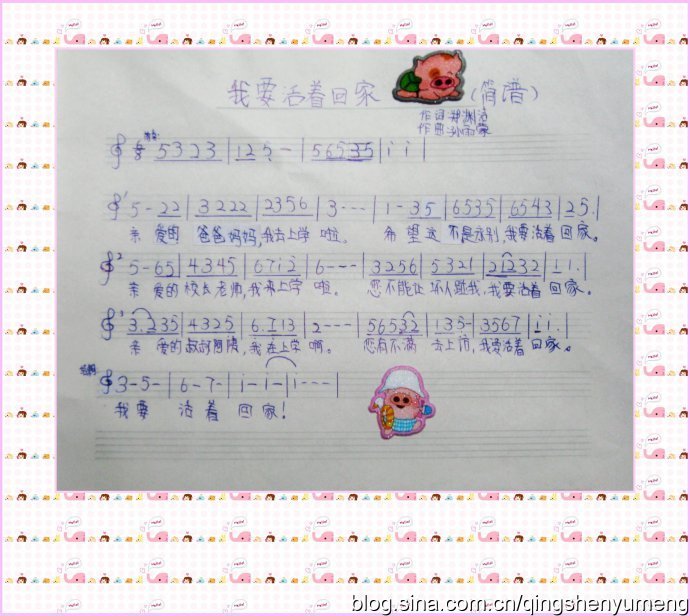 我要活着回家 (简谱)
作词 郑渊洁
作曲
5 3 2 3 | 1 2 5 - | 5 6 5 3 5 | i i |
1 5 - 2 2 | 3 2 2 2 | 2 3 5 6 | 3 - - - | 1 - 3 5 | 6 5 3 5 | 6 5 4 3 | 2 5. |
亲爱的 爸爸妈妈,我去上学啦。 希望这不是永别,我要活着回家。
2 5 - 6 5 | 4 3 4 5 | 6 7 i 2 | 6 - - - | 3 2 5 6 | 5 3 2 1 | 2 1 2 3 2 | 1 1. |
亲爱的校长老师,我来上学啦。 您不能让坏人跐我,我要活着回家。
3 3. 2 3 5 | 4 3 2 5 | 6. 7 1 3 | 2 - - - | 5 6 5 3 2 | 1 3 5 - | 3 5 6 7 | i i. |
亲爱的叔叔阿姨,我在上学啊。 您有不满去上访,我要活着回家。
3 - 5 - | 6 - 7 - | i - i - | i - - - |
我要活着回家!
blog.sina.com.cn/qingshenyumeng